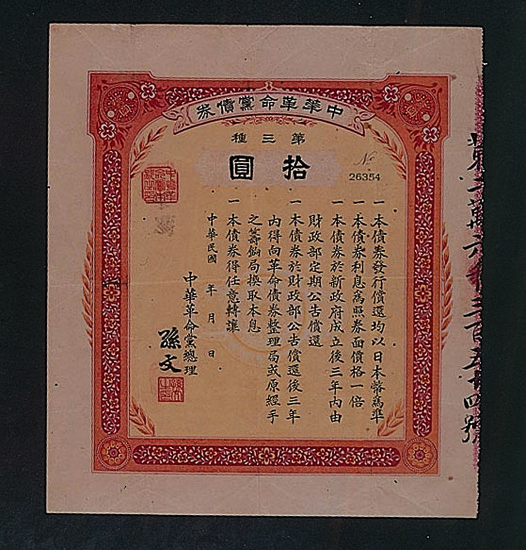 中華革命黨債券
第三種
拾圓
No
26354
一本債券發行償還均以日本幣為準
一本債券利息為照券面價格一倍
一本債券於新政府成立後三年內由
財政部定期公告償還
一本債券於財政部公告償還後三年
內得向革命債券整理局或原經手
之籌餉局換取本息
一本債券得任意轉讓
中華民國 年 月 日
中華革命黨總理
孫文